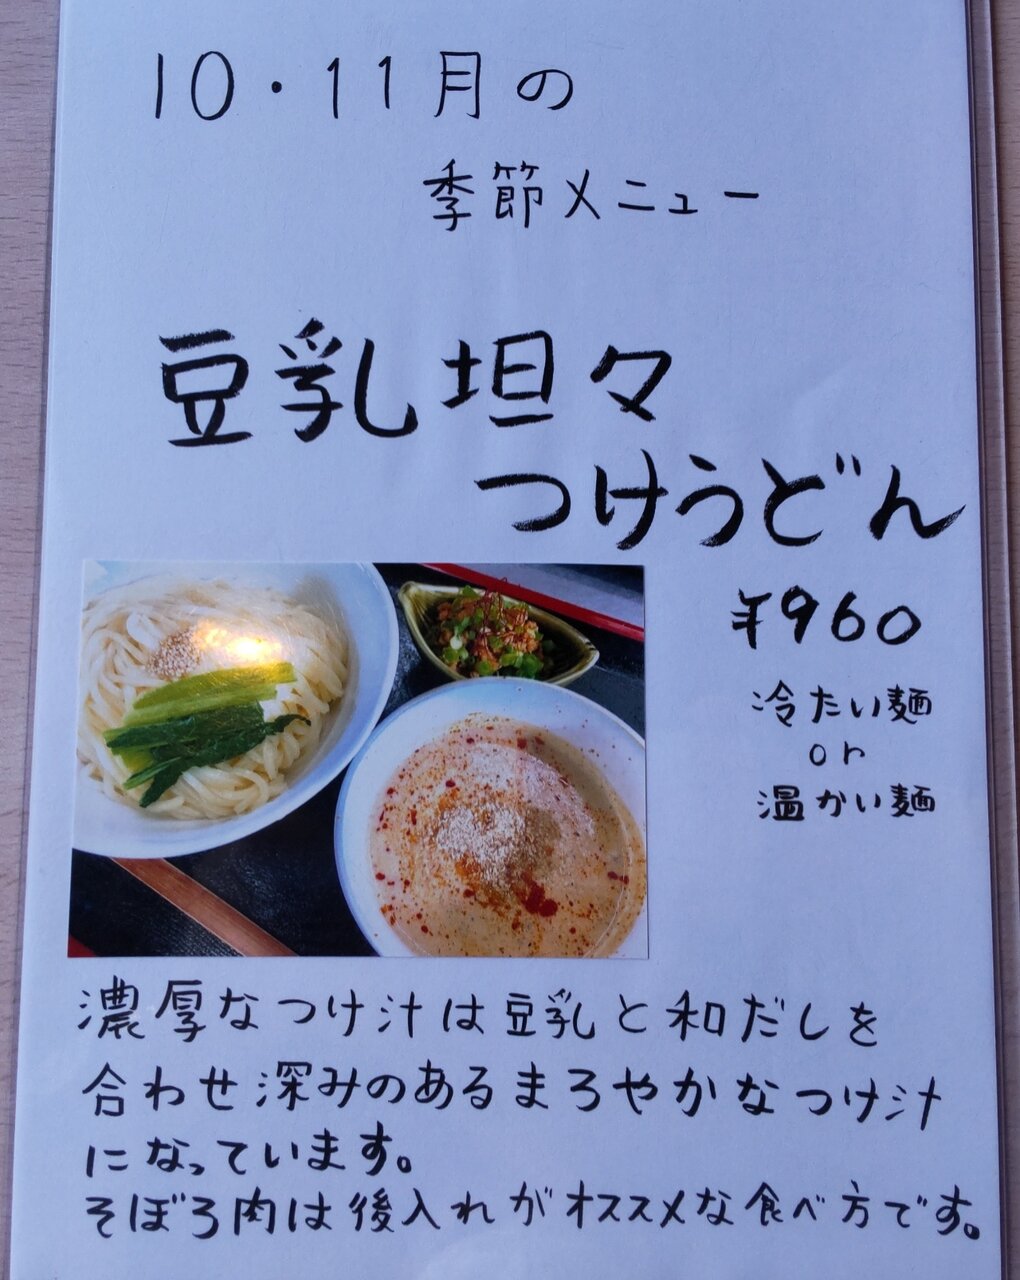 10・11月の
季節メニュー
豆乳坦々
つけうどん
¥960
冷たい麺
or
温かい麺
濃厚なつけ汁は豆乳と和だしを
合わせ深みのあるまろやかなつけ汁
になっています。
そぼろ肉は後入れがオススメな食べ方です。